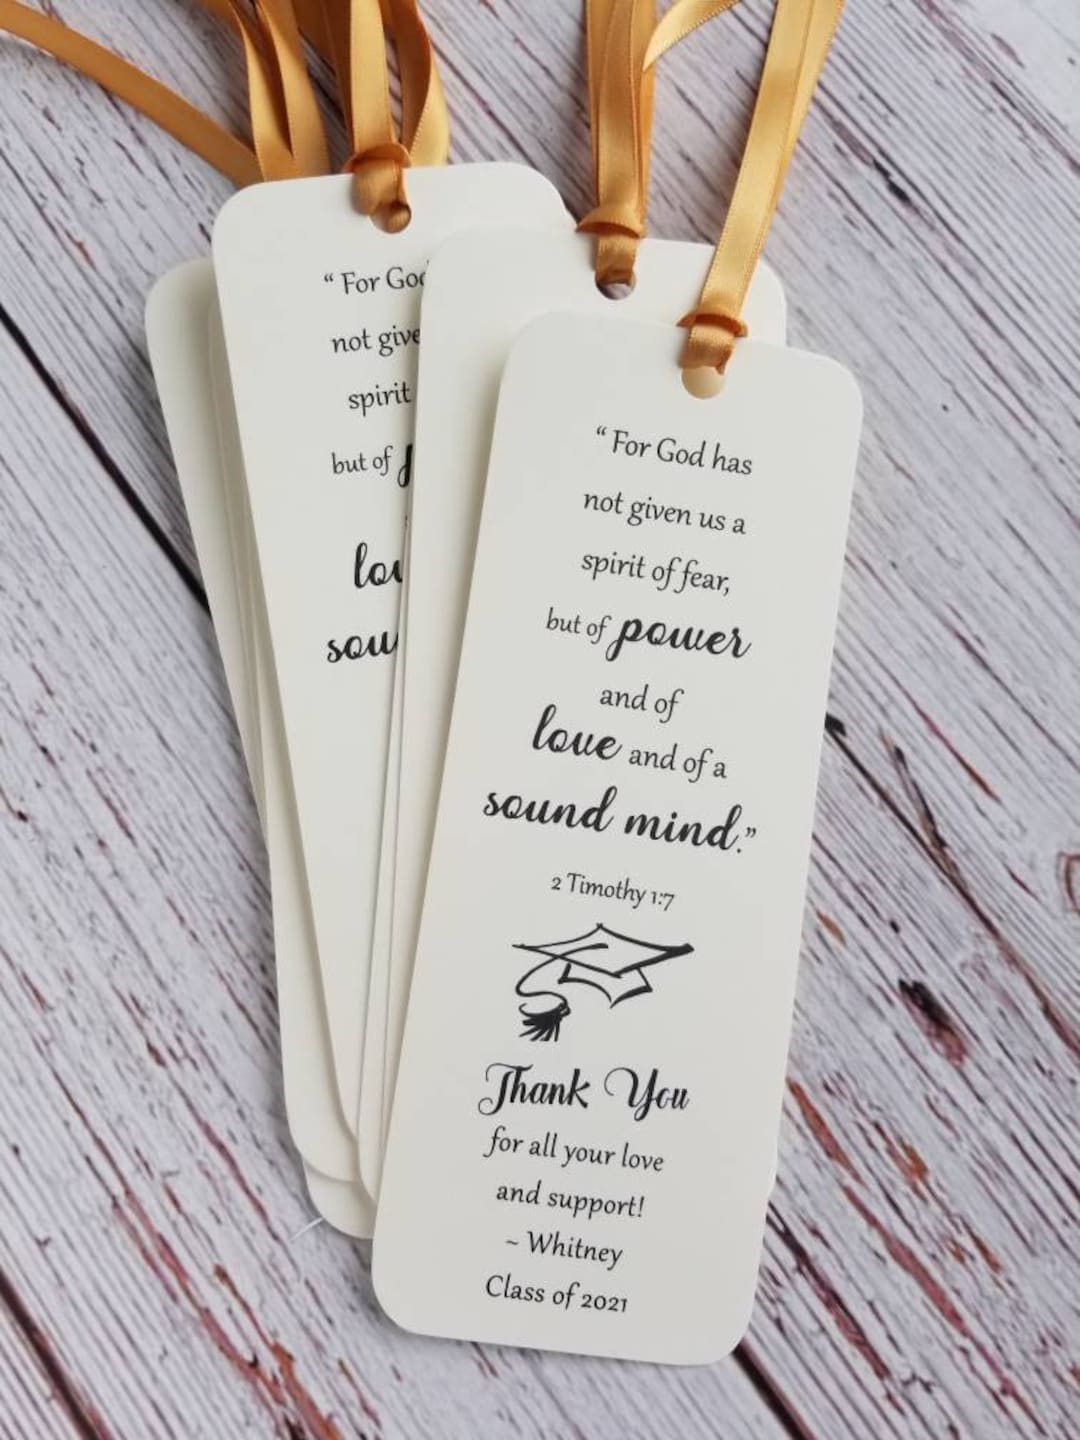 “ For God
not give
spirit
but of
lov
soun
“ For God has
not given us a
spirit of fear,
but of power
and of
love and of a
sound mind.”
2 Timothy 1:7
Thank You
for all your love
and support!
~ Whitney
Class of 2021